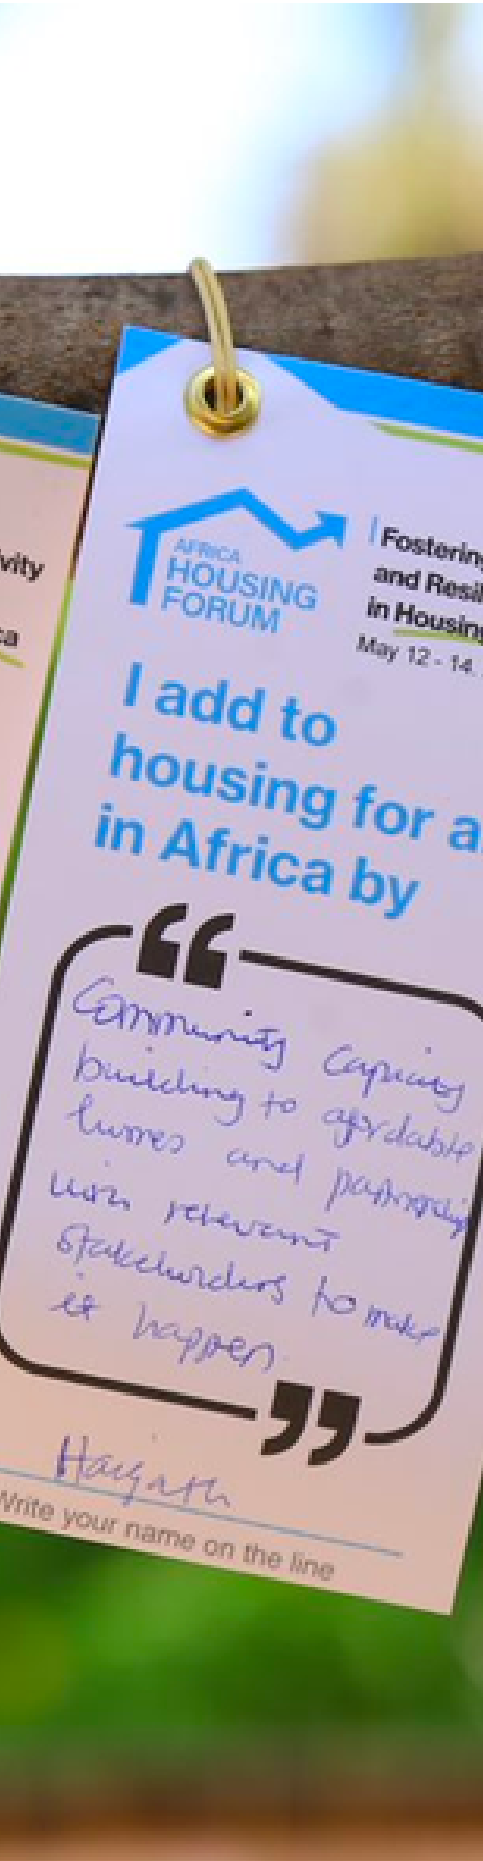 vity
ca
AFRICA
HOUSING
FORUM
Fostering
and Resil
in Housing
May 12 - 14.
I add to
housing for a
in Africa by
“
Community Capacity
building to afordable
homes and partnership
with relevant
stakeholders to make
it happen.
”
Write your name on the line